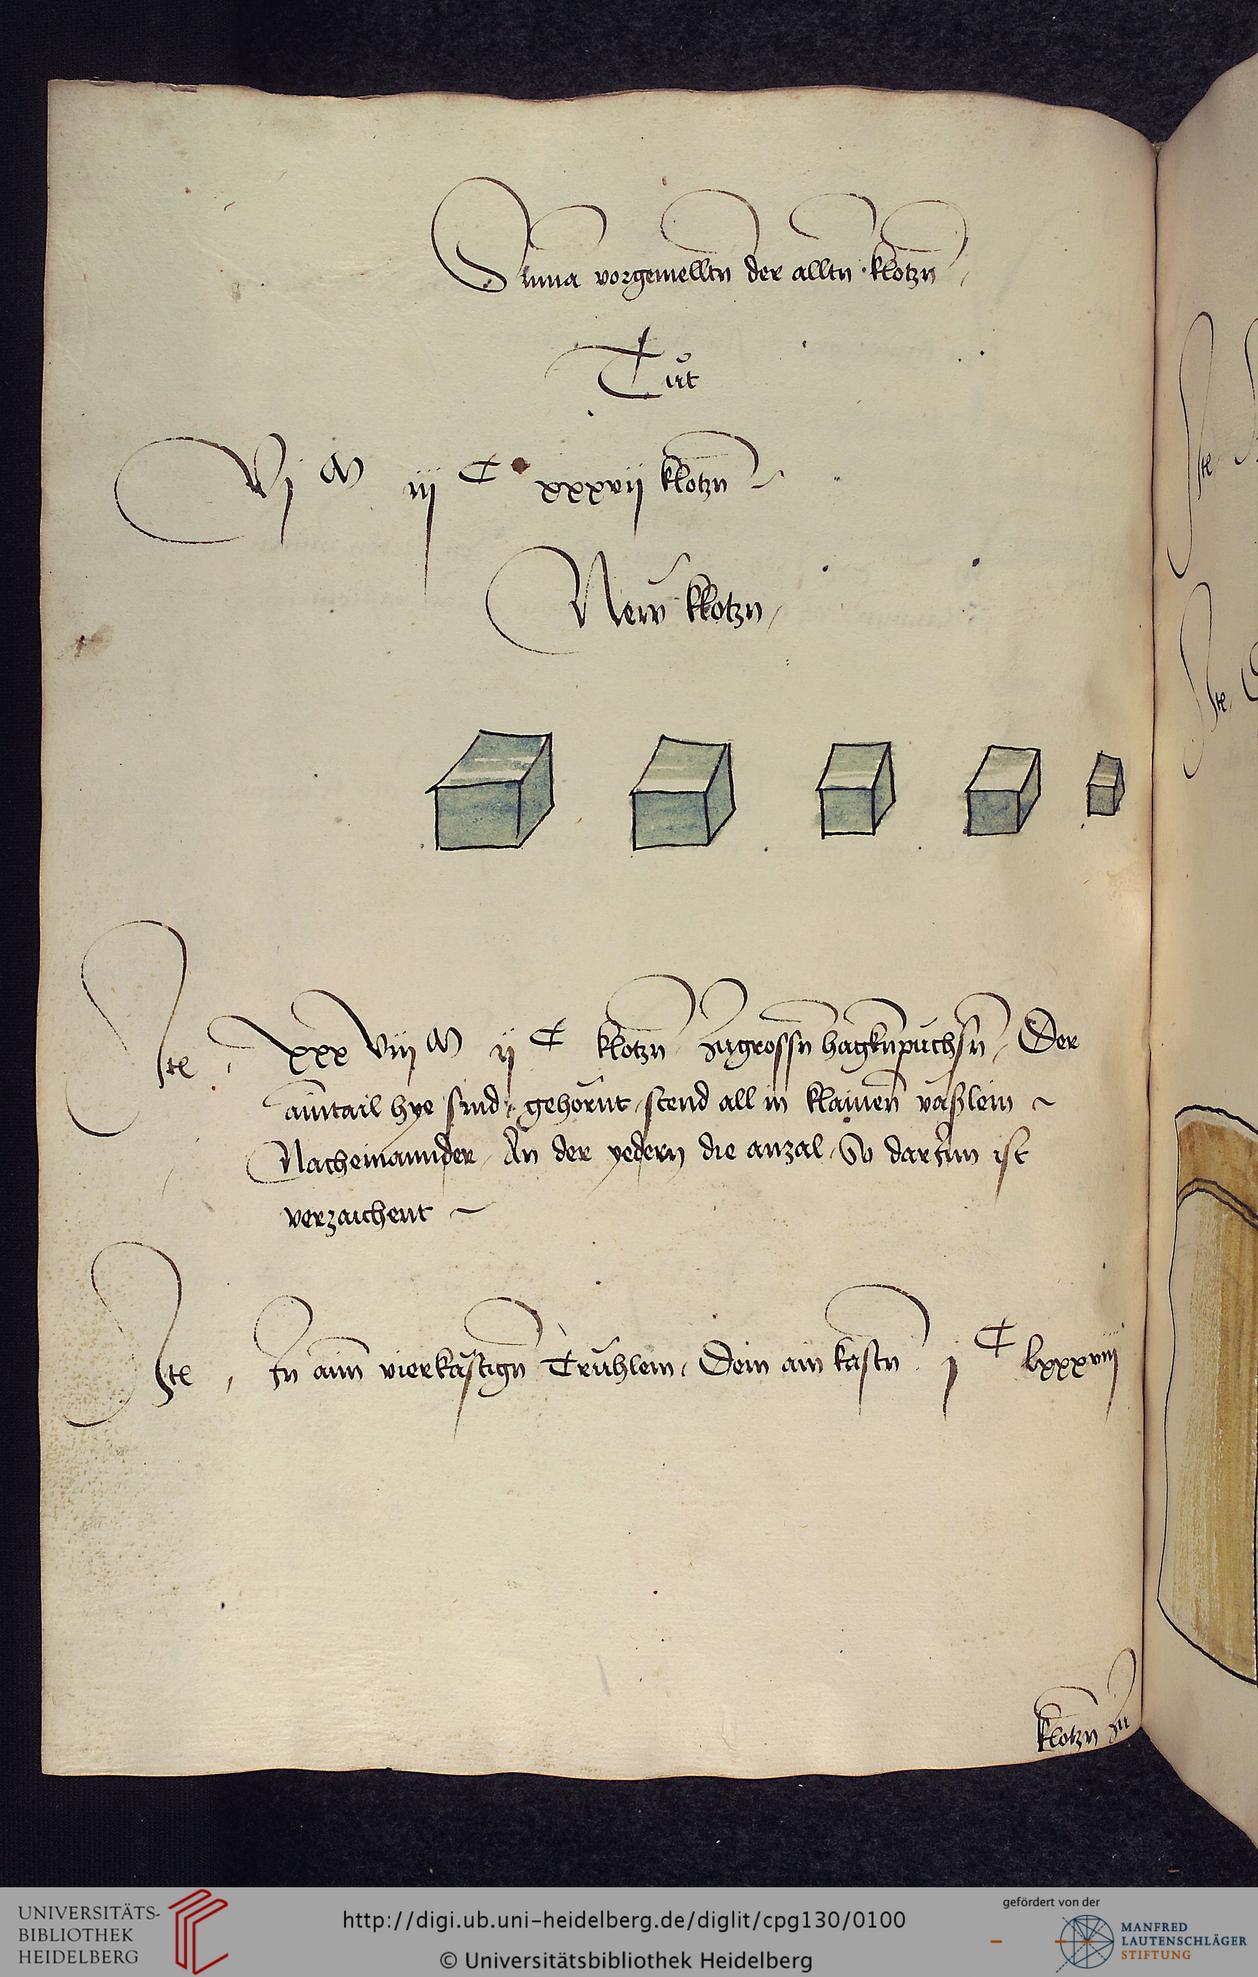 Suma vorgemelltn der alltn klotzn
Tut
Vj M iij C xxxvij klotzn
New klotzn
Ite xxxviij M ij C klotzn Zugrossn hagknpuchsn Der
aintail hye sind gehornt stend all in klainen vaßlein
Nacheinannder An der yedern die anzal So darInn ist
verzaichent
Ite In ainn vierkastign Truhlein Dein ain kastn j C lxxxviij
klotzn zu
UNIVERSITÄTS-
BIBLIOTHEK
HEIDELBERG
http://digi.ub.uni-heidelberg.de/diglit/cpg130/0100
© Universitätsbibliothek Heidelberg
gefördert von der
MANFRED
LAUTENSCHLÄGER
STIFTUNG